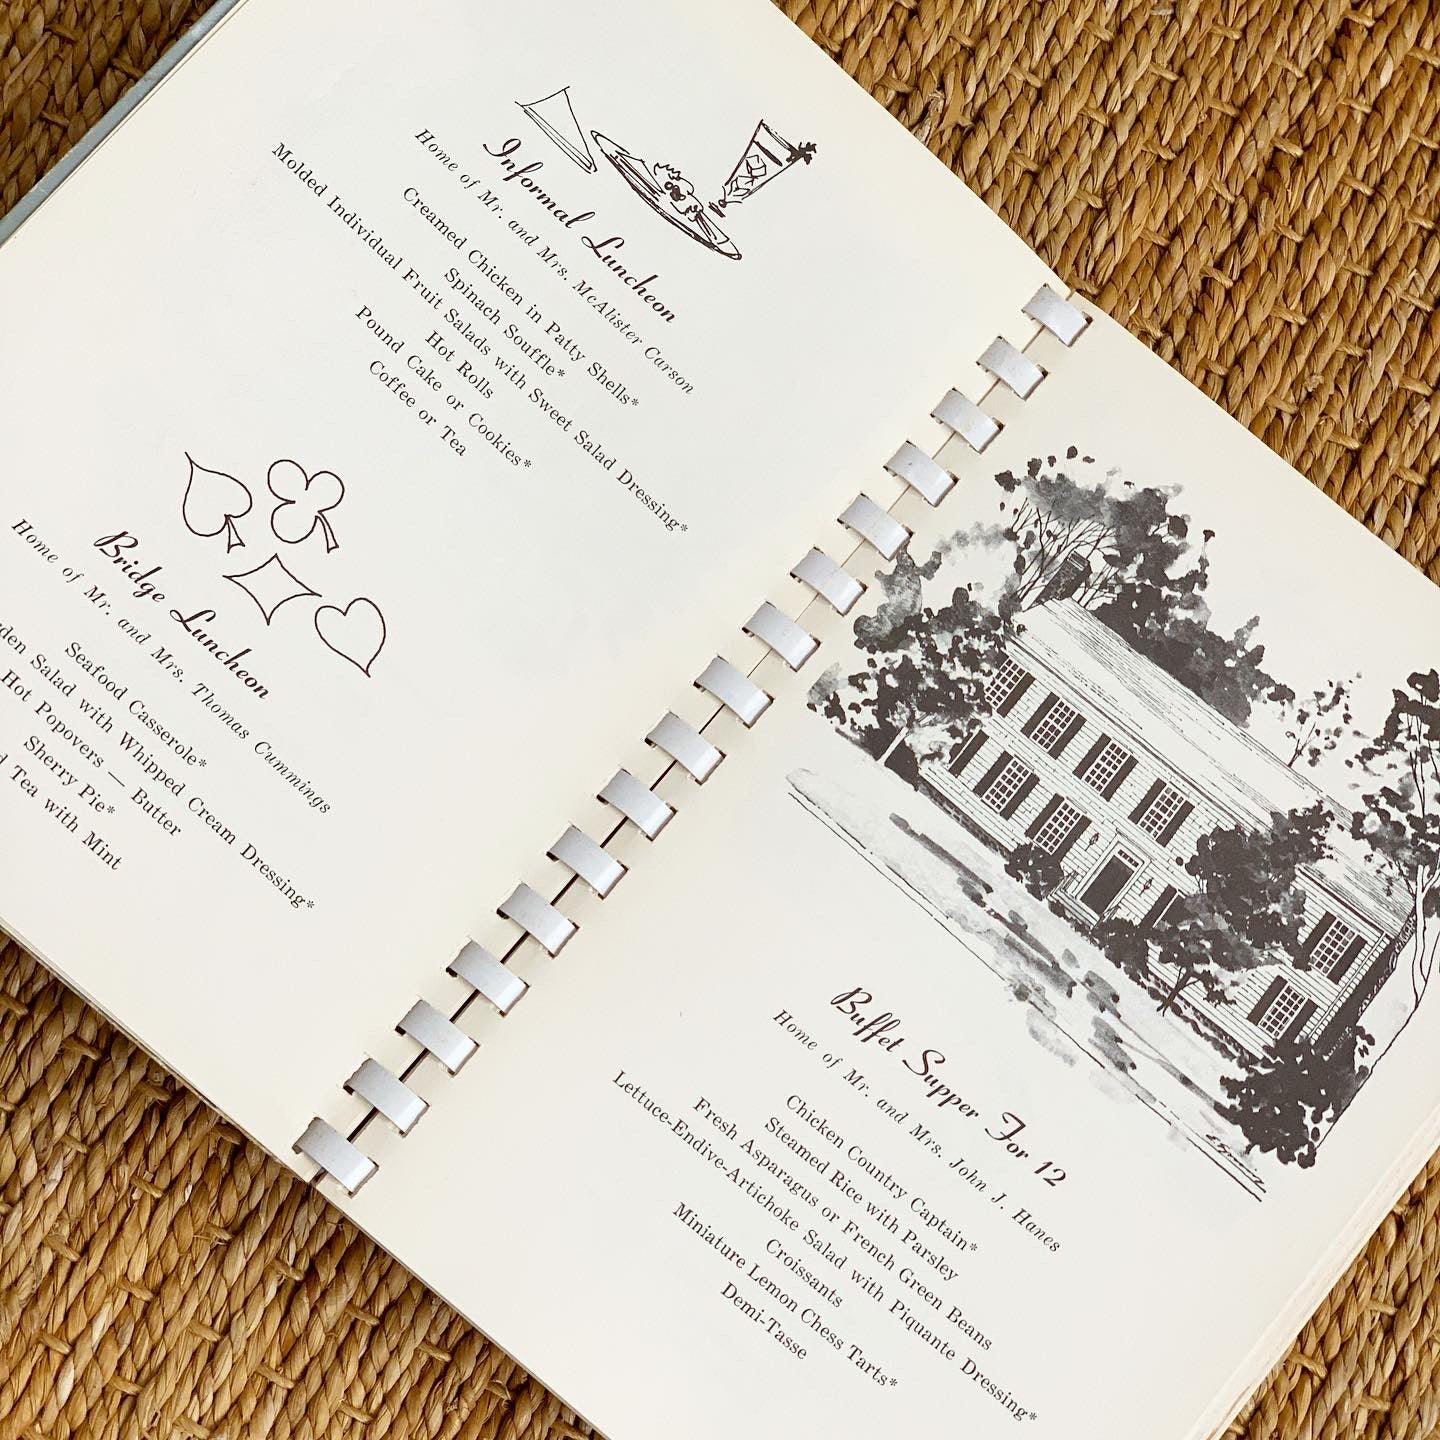 Informal Luncheon
Home of Mr. and Mrs. McAlister Carson
Creamed Chicken in Patty Shells*
Spinach Souffle*
Molded Individual Fruit Salads with Sweet Salad Dressing*
Hot Rolls
Pound Cake or Cookies*
Coffee or Tea
Bridge Luncheon
Home of Mr. and Mrs. Thomas Cummings
Seafood Casserole*
Salad with Whipped Cream Dressing*
Hot Popovers — Butter
Sherry Pie*
Tea with Mint
Buffet Supper For 12
Home of Mr. and Mrs. John J. Hanes
Chicken Country Captain*
Steamed Rice with Parsley
Fresh Asparagus or French Green Beans
Lettuce-Endive-Artichoke Salad with Piquante Dressing*
Croissants
Miniature Lemon Chess Tarts*
Demi-Tasse